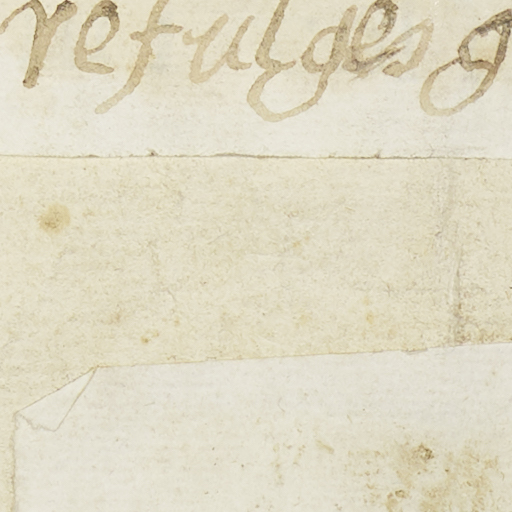 refulges g